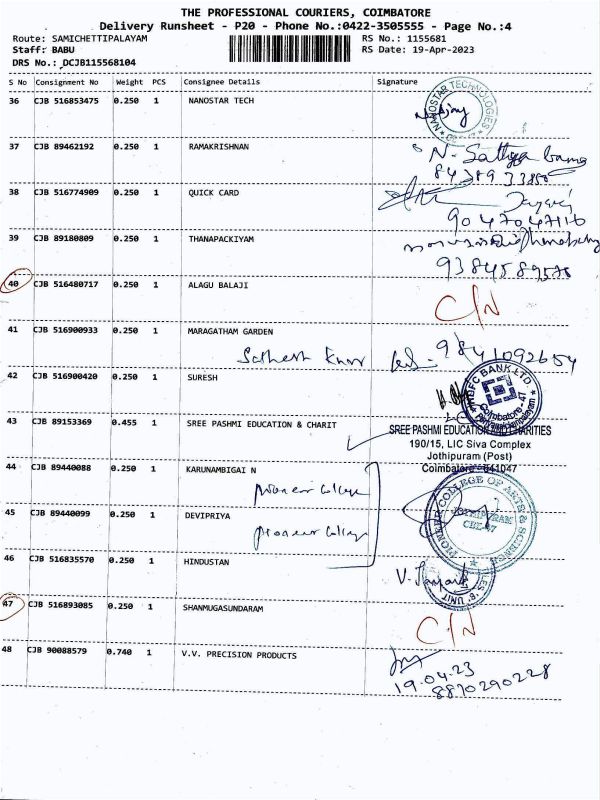 THE PROFESSIONAL COURIERS, COIMBATORE
Delivery Runsheet - P20 - Phone No.:0422-3505555 - Page No.:4
Route: SAMICHETTIPALAYAM
RS No.: 1155681
Staff: BABU
RS Date: 19-Apr-2023
DRS No.: DCJB115568104
S No Consignment No Weight PCS Consignee Details Signature
36 CJB 516853475 0.250 1 NANOSTAR TECH
NANOSTAR TECHNOLOGIES
37 CJB 89462192 0.250 1 RAMAKRISHNAN
N. Sathya bama
38 CJB 516774909 0.250 1 QUICK CARD
9047047116
39 CJB 89180809 0.250 1 THANAPACKIYAM
40 CJB 516480717 0.250 1 ALAGU BALAJI
C/N
41 CJB 516900933 0.250 1 MARAGATHAM GARDEN
Sathesh Kumar
9841092654
42 CJB 516900420 0.250 1 SURESH
HDFC BANK LTD.
Coimbatore-47
43 CJB 89153369 0.455 1 SREE PASHMI EDUCATION & CHARIT
SREE PASHMI EDUCATION AND CHARITIES
190/15, LIC Siva Complex
Jothipuram (Post)
Coimbatore - 641047
44 CJB 89440088 0.250 1 KARUNAMBIGAI N
pioneer college
45 CJB 89440099 0.250 1 DEVIPRIYA
pioneer college
PIONEER COLLEGE OF ARTS & SCIENCE
JOTHIPURAM
CBE-47
46 CJB 516835570 0.250 1 HINDUSTAN
47 CJB 516893085 0.250 1 SHANMUGASUNDARAM
C/N
48 CJB 90088579 0.740 1 V.V. PRECISION PRODUCTS
19.04.23
8870290228